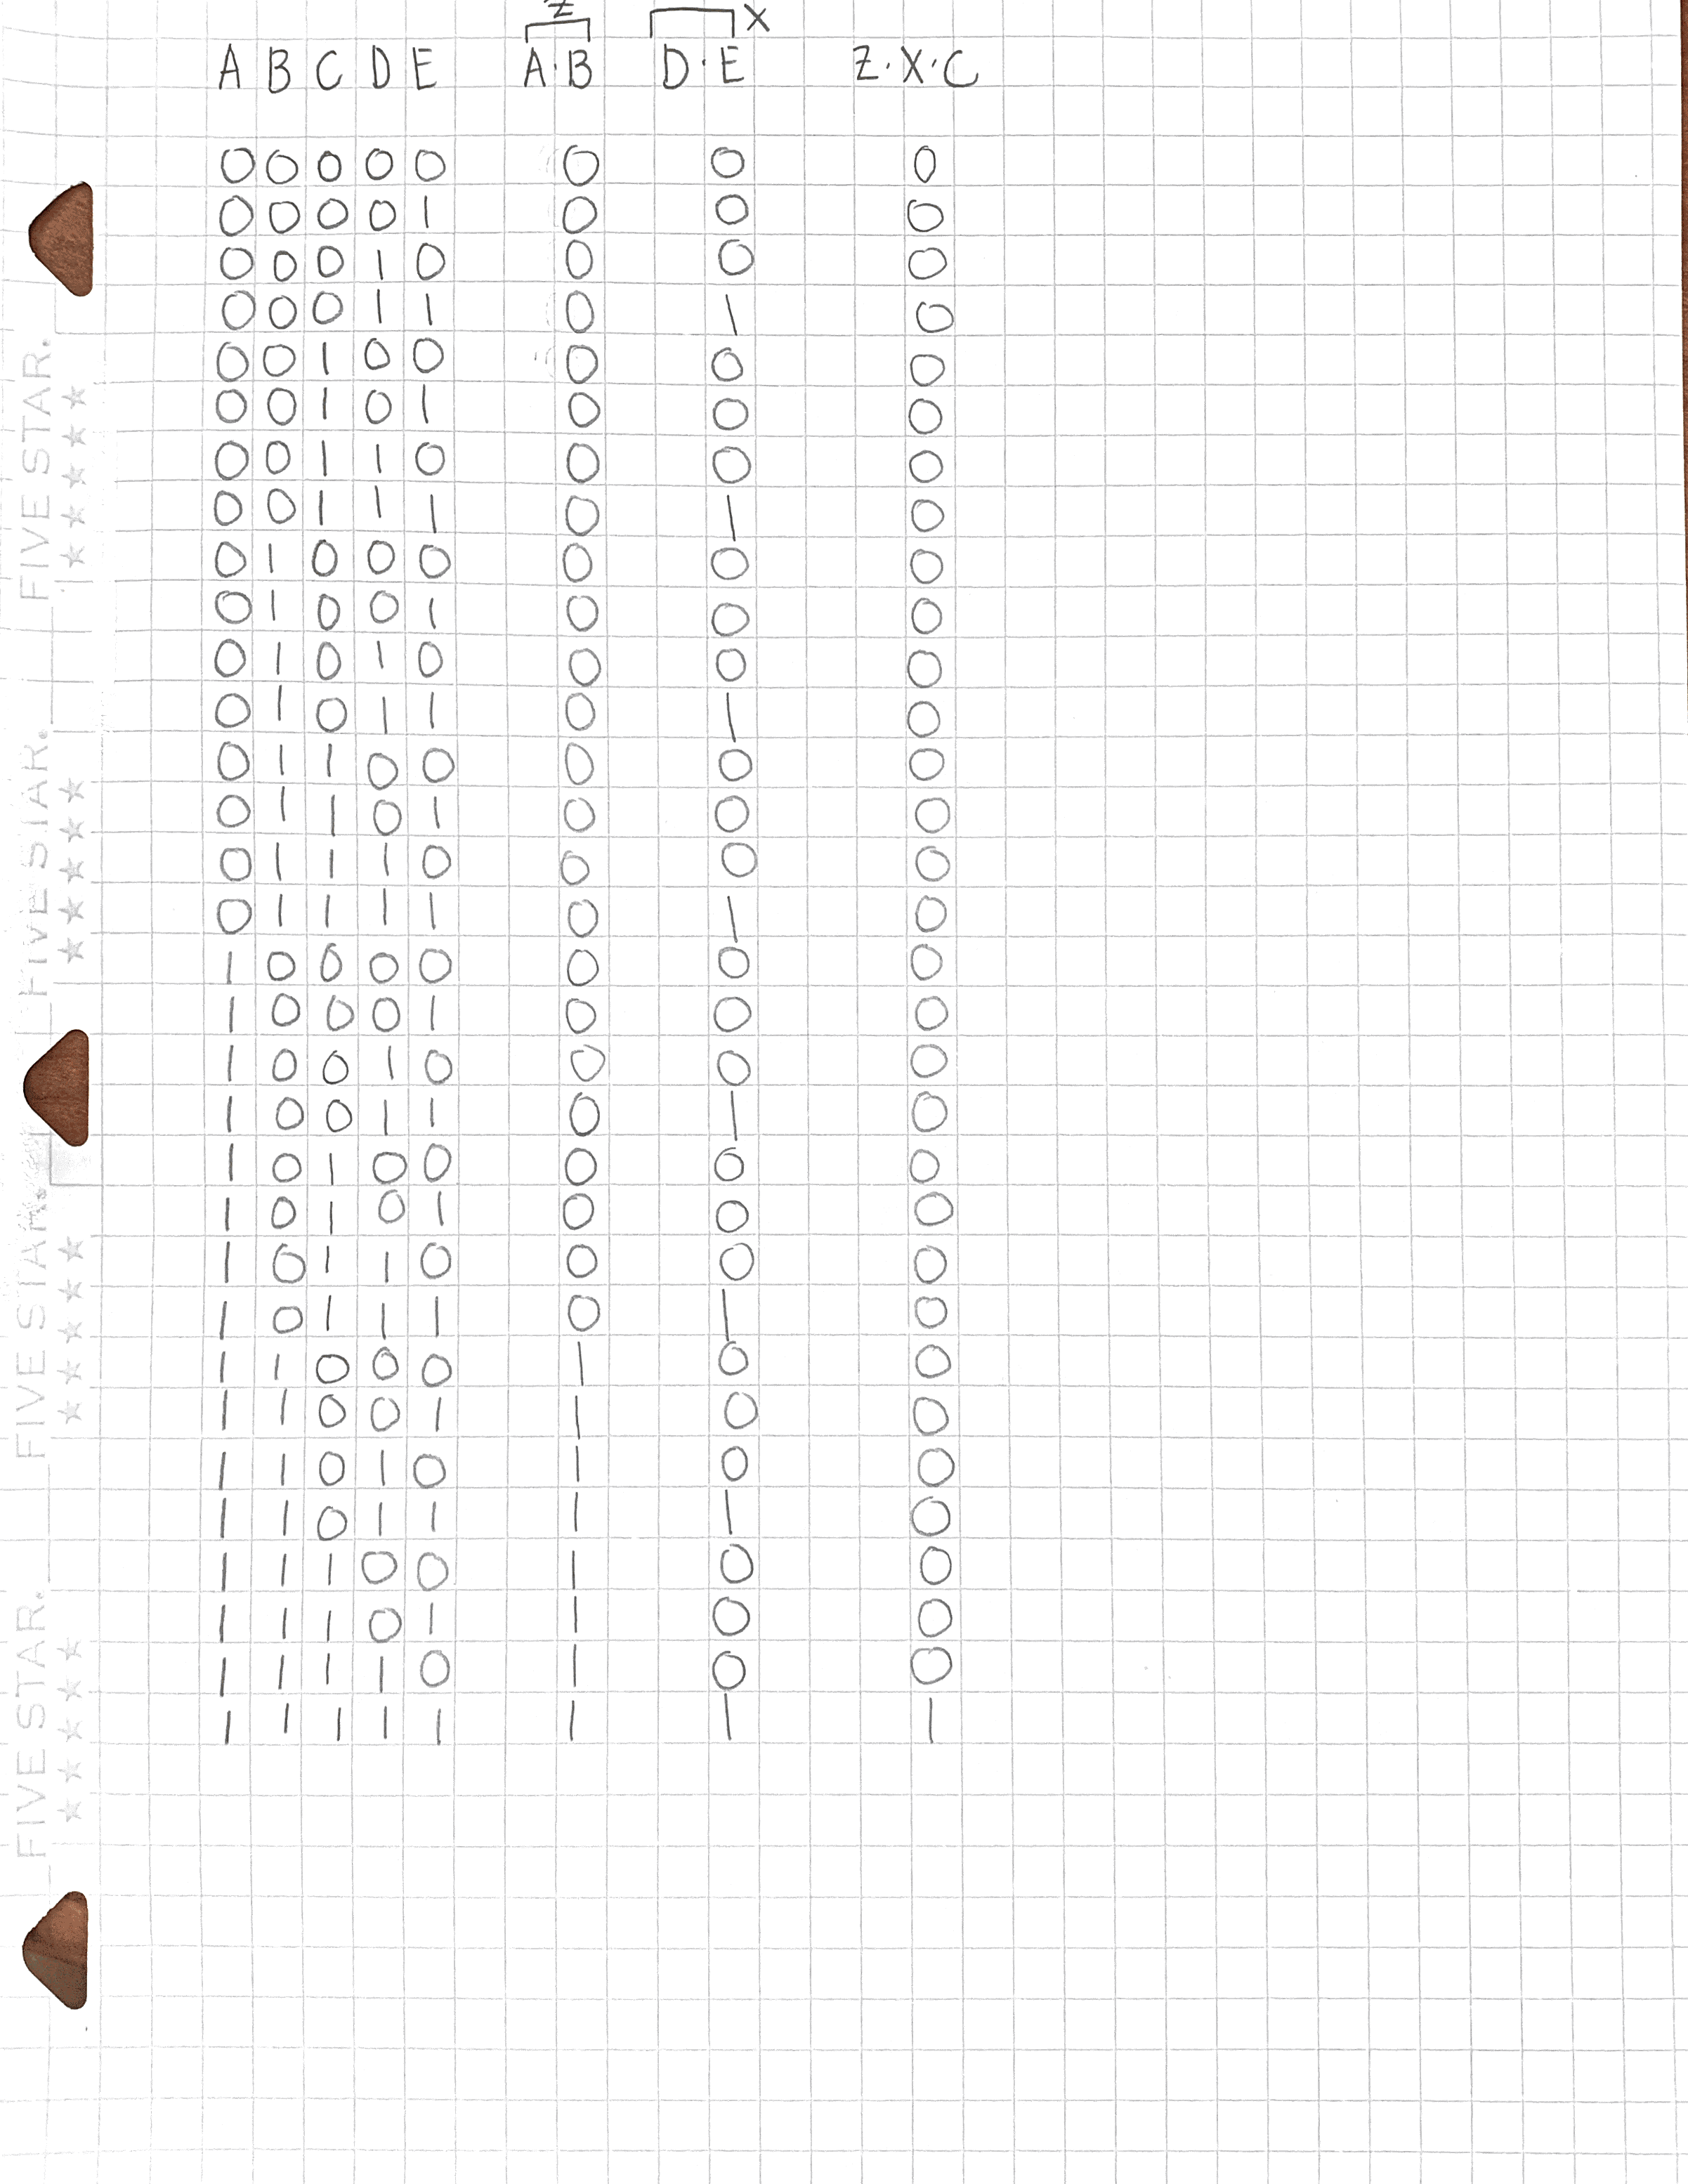 Z X
A B C D E A·B D·E Z·X·C
0 0 0 0 0 0 0 0
0 0 0 0 1 0 0 0
0 0 0 1 0 0 0 0
0 0 0 1 1 0 1 0
0 0 1 0 0 0 0 0
0 0 1 0 1 0 0 0
0 0 1 1 0 0 0 0
0 0 1 1 1 0 1 0
0 1 0 0 0 0 0 0
0 1 0 0 1 0 0 0
0 1 0 1 0 0 0 0
0 1 0 1 1 0 1 0
0 1 1 0 0 0 0 0
0 1 1 0 1 0 0 0
0 1 1 1 0 0 0 0
0 1 1 1 1 0 1 0
1 0 0 0 0 0 0 0
1 0 0 0 1 0 0 0
1 0 0 1 0 0 0 0
1 0 0 1 1 0 1 0
1 0 1 0 0 0 0 0
1 0 1 0 1 0 0 0
1 0 1 1 0 0 0 0
1 0 1 1 1 0 1 0
1 1 0 0 0 1 0 0
1 1 0 0 1 1 0 0
1 1 0 1 0 1 0 0
1 1 0 1 1 1 1 0
1 1 1 0 0 1 0 0
1 1 1 0 1 1 0 0
1 1 1 1 0 1 0 0
1 1 1 1 1 1 1 1
FIVE STAR.
FIVE STAR.
FIVE STAR.
FIVE STAR.